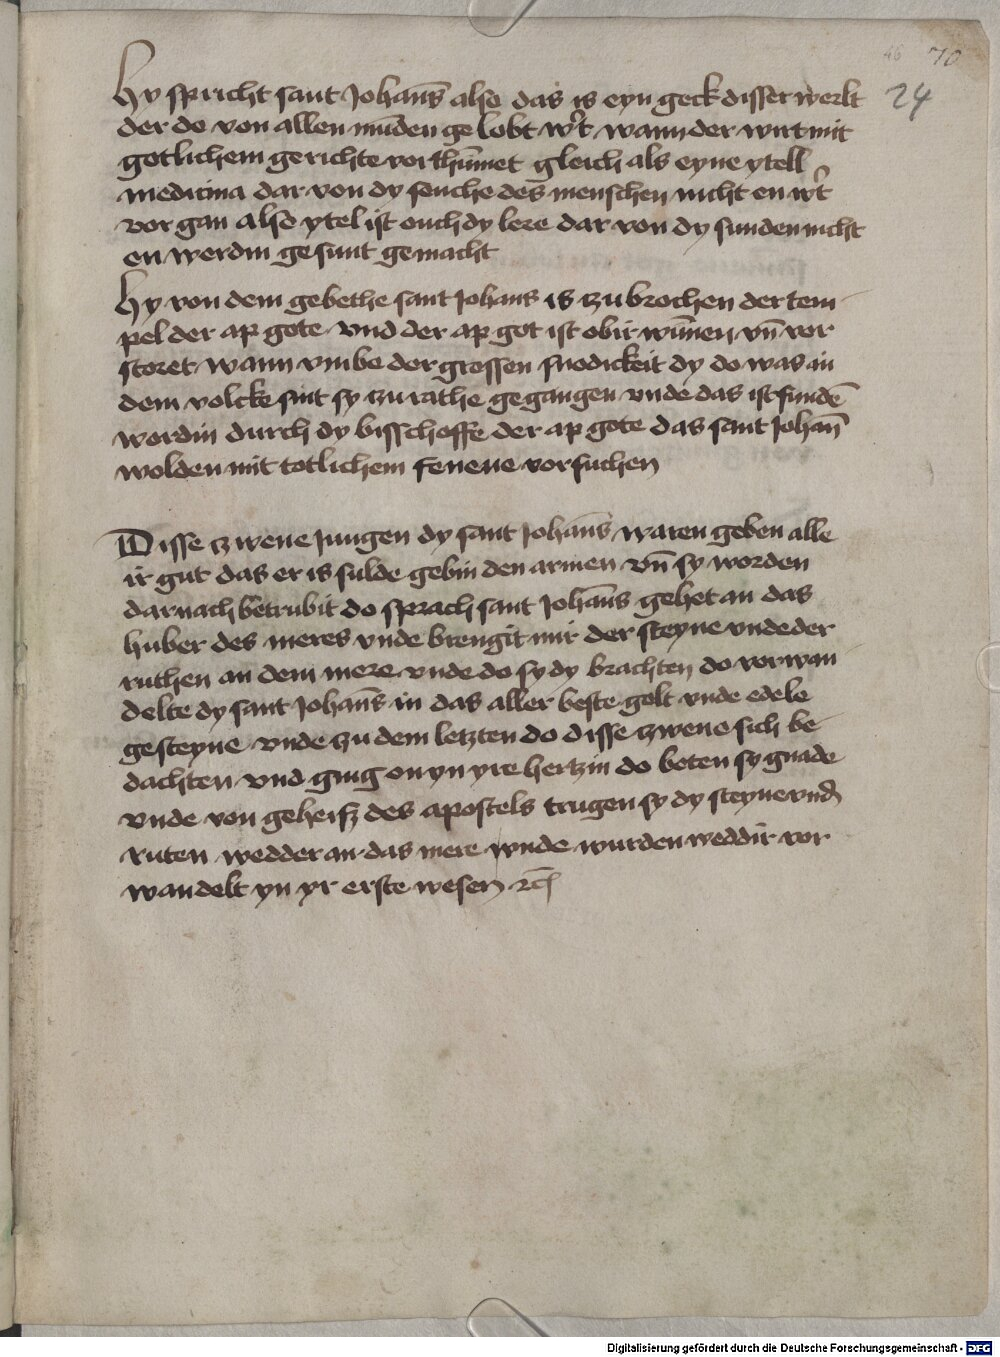 46 70
24
Hy spricht sant Johans̄ also das is eyn geck disser werlt
der do von allen mūden ge lobt wᵒt wann der wirt mit
gotlichem gerichte vor thūmet gleich als eyne ytell
medicina dar von dy seuche des menschen nicht en wᵒt
vor gan also ytel ist ouch dy lere dar von dy sunden nicht
en werdin gesunt gemacht
Hy von dem gebethe sant Johans is zu brochen der tem
pel der ap gote vnd der ap got ist obir wūnen vn̄ vor
storet wann vmbe der grossen snodickeit dy do was in
dem volcke sint sy zu rathe gegangen vnde das ist fundē
wordin durch dy bisschoffe der ap gote das sant Johan̄
wolden mit totlichem fenene vorsuchen
Disse zwene Jungen dy sant Johan̄s waren geben alle
ir gut das er is sulde gebin den armen vn̄ sy worden
darnach betrubit do sprach sant Johan̄s gehet an das
huber des meres vnde brengit mir der steyne vnde der
ruthen an dem mere vnde do sy dy brachten do vorwan
delte dy sant Johan̄s in das aller beste golt vnde edele
gesteyne vnde zu dem letzten do disse zwene sich be
dachten vnd ging on yn yre hertzin do beten sy gnade
vnde von geheisz des apostels trugen sy dy steyne vnd
ruten wedder an das mere vnde wurden weddir vor
wandelt yn yr erste wesen ⁊c̄
Digitalisierung gefördert durch die Deutsche Forschungsgemeinschaft - DFG